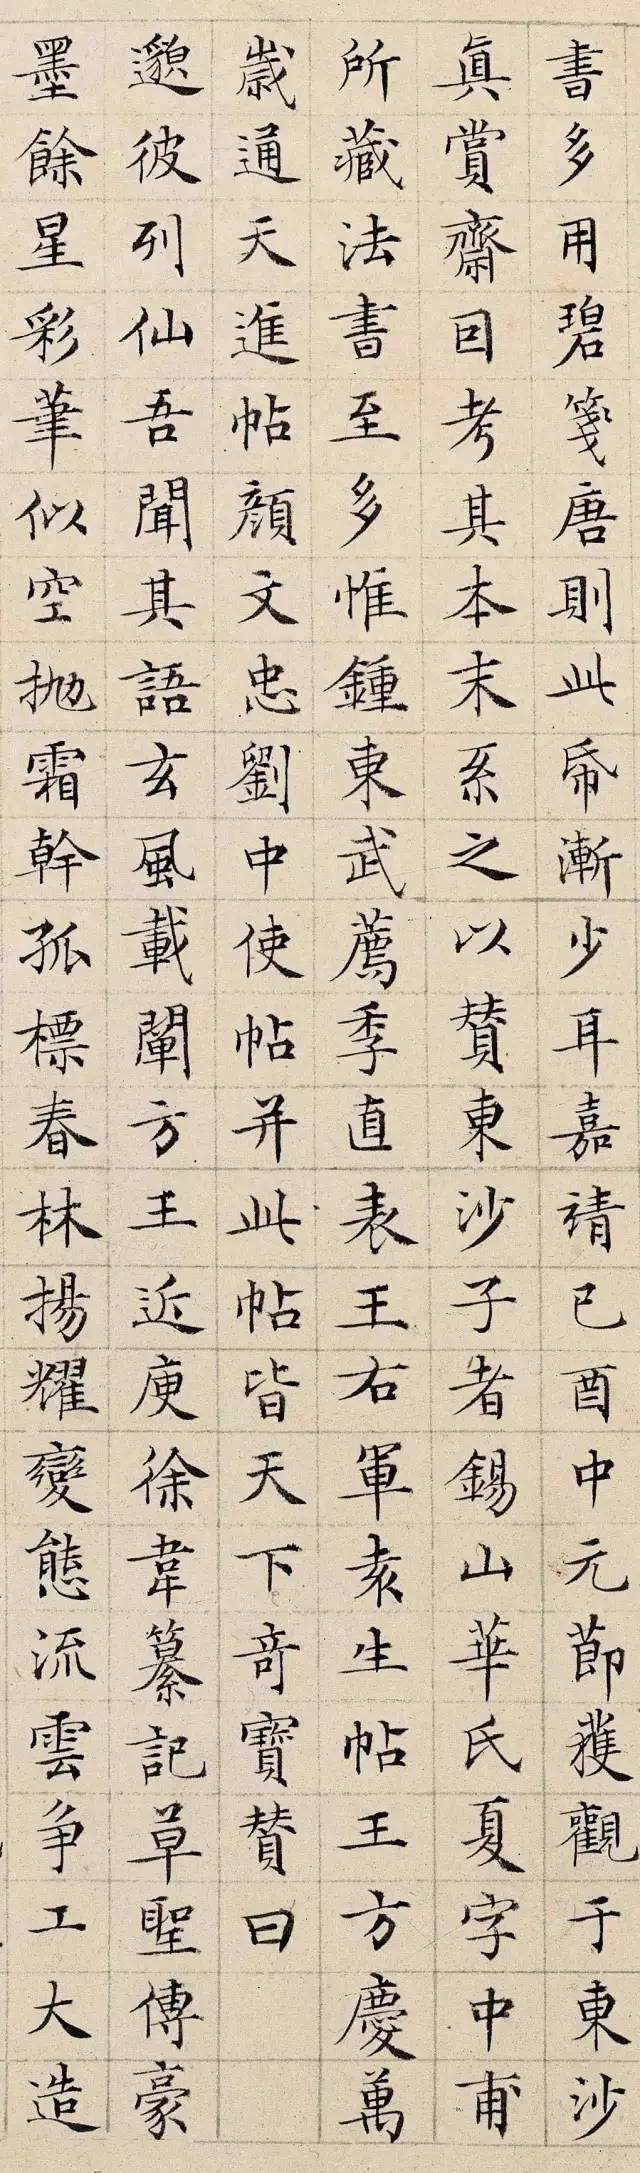 書多用碧箋唐則此帋漸少耳嘉靖己酉中元節獲觀于東沙
真賞齋因考其本末系之以贊東沙子者錫山華氏夏字中甫
所藏法書至多惟鍾東武薦季直表王右軍袁生帖王方慶萬
歲通天進帖顏文忠劉中使帖并此帖皆天下奇寶贊曰
邈彼列仙吾聞其語玄風載闡方王近庾徐韋纂記草聖傳豪
墨餘星彩筆似空拋霜幹孤標春林揚耀變態流雲爭工大造